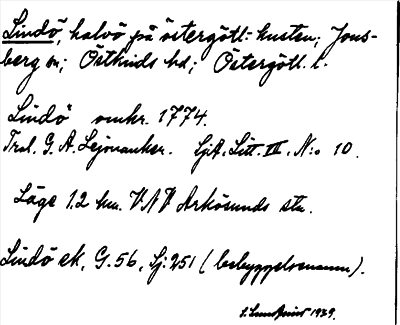 Lindö, halvö på östergötl. kusten; Jons-
berg sn; Östkinds hd; Östergötl. l.
Lindö omkr. 1774.
Trol. G. A. Lejonanker. SjA. Litt. III. N:o 10.
Läge 1.2 km. VNV Arkösunds stn.
Lindö ek, G. 56, Sj: 251 (bebyggelsenamn).
1939.